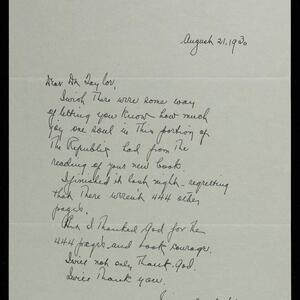 August 21, 1930
Dear Dr. Taylor,
I wish there were some way
of letting you know how much
joy one soul in this portion of
the Republic had from the
reading of your new book.
I finished it last night - regretting
that there weren't 444 other
pages.
And I thanked God for the
444 pages and took courage.
I will not only thank God,
I will thank you.